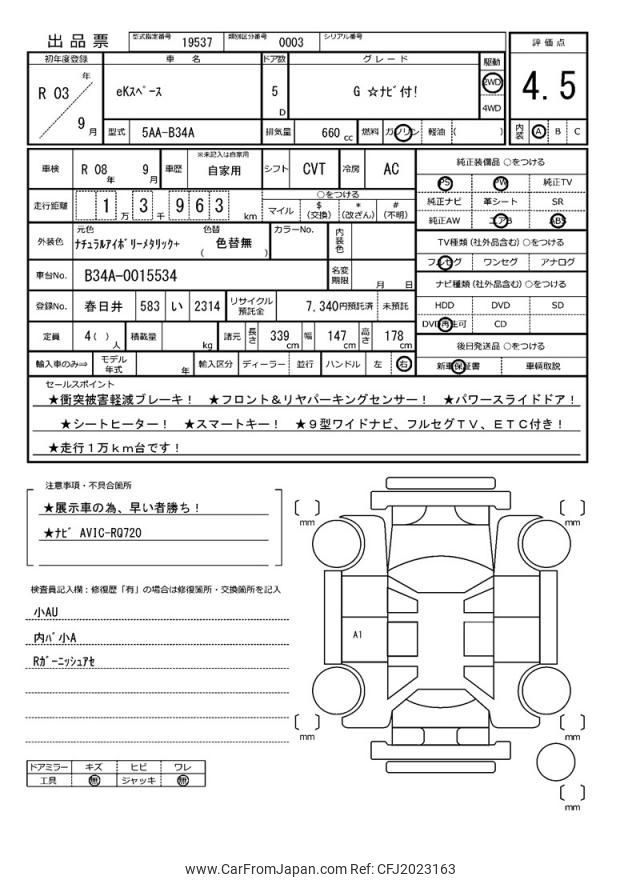 出品票 型式指定番号 19537 類別区分番号 0003 シリアル番号
初年度登録 車名 ドア数 グレード 駆動 評価点
R 03 年 9 月 eKスペース 5 D G ☆ナビ付! 2WD 4WD 4.5
型式 5AA-B34A 排気量 660 cc 燃料 ガソリン 軽油 ( ) 内装 A B C
車検 R 08 年 9 月 車歴 ※未記入は自家用 自家用 シフト CVT 冷房 AC 純正装備品 ○をつける
PS PW 純正TV
走行距離 1 万 3 千 9 6 3 km ○をつける マイル $ (交換) * (改ざん) # (不明) 純正ナビ 革シート SR
純正AW エアB ABS
外装色 元色 ナチュラルアイボリーメタリック+ 色替 ( 色替無 ) カラーNo. 内装色 TV種類 (社外品含む) ○をつける
フルセグ ワンセグ アナログ
車台No. B34A-0015534 名変期限 月 日 ナビ種類 (社外品含む) ○をつける
登録No. 春日井 583 い 2314 リサイクル預託金 7,340円預託済 未預託 HDD DVD SD
DVD再生可 CD
定員 4 ( ) 人 積載量 kg 諸元 長さ 339 cm 幅 147 cm 高さ 178 cm 後日発送品 ○をつける
輸入車のみ⇒ モデル年式 年 輸入区分 ディーラー 並行 ハンドル 左 右 新車保証書 車輌取説
セールスポイント
★衝突被害軽減ブレーキ! ★フロント&リヤパーキングセンサー! ★パワースライドドア!
★シートヒーター! ★スマートキー! ★9型ワイドナビ、フルセグTV、ETC付き!
★走行1万km台です!
注意事項・不具合箇所
★展示車の為、早い者勝ち!
★ナビ AVIC-RQ720
検査員記入欄:修復歴「有」の場合は修復箇所・交換箇所を記入
小AU
内バ小A
Rガーニッシュアセ
A1
mm
mm
mm
mm
mm
ドアミラー キズ ヒビ ワレ
工具 無 ジャッキ 無
www.CarFromJapan.com Ref: CFJ2023163